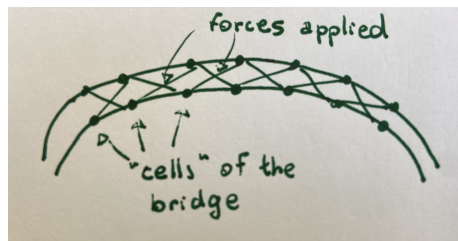 forces applied
"cells" of the
bridge